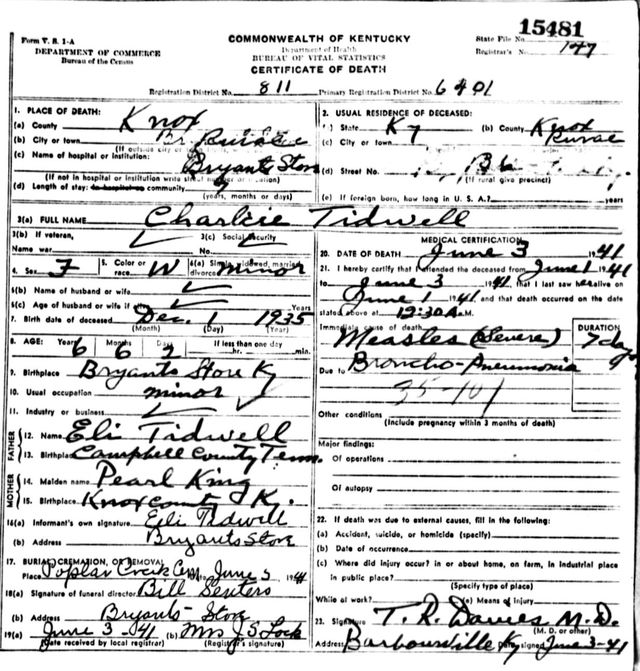 Form V. S. 1-A
DEPARTMENT OF COMMERCE
Bureau of the Census
COMMONWEALTH OF KENTUCKY
Department of Health
BUREAU OF VITAL STATISTICS
CERTIFICATE OF DEATH
15481
State File No.
Registrar's No. 147
Registration District No. 811 Primary Registration District No. 6401
1. PLACE OF DEATH:
(a) County Knox
(b) City or town
(If outside city or
(c) Name of hospital or institution: Bryants Store
(If not in hospital or institution write street number or location)
(d) Length of stay: In hospital or community
(years, months or days)
2. USUAL RESIDENCE OF DECEASED:
(a) State Ky (b) County Knox
(c) City or town Rurae
(d) Street No.
(If rural give precinct)
(e) If foreign born, how long in U. S. A.? years
3(a) FULL NAME Charlsie Tidwell
3(b) If veteran, Name war 3(c) Social Security No.
4. Sex F 5. Color or race W 6(a) Single, widowed, married, divorced minor
6(b) Name of husband or wife
6(c) Age of husband or wife if alive Years
7. Birth date of deceased Dec. 1 1935
(Month) (Day) (Year)
8. AGE: Years 6 Months 6 Days 2 If less than one day hr. min.
9. Birthplace Bryants Store Ky
10. Usual occupation minor
11. Industry or business
FATHER
12. Name Eli Tidwell
13. Birthplace Campbell County Tenn.
MOTHER
14. Maiden name Pearl King
15. Birthplace Knox County Ky.
16(a) Informant's own signature Eli Tidwell
(b) Address Bryants Store
17. BURIAL, CREMATION, OR REMOVAL
Place Poplar Creek Cem. June 5 1941
18(a) Signature of funeral director Bill Senters
(b) Address Bryants Store
19(a) June 3-41 (b) Mrs J S Lock
(Date received by local registrar) (Registrar's signature)
MEDICAL CERTIFICATION
20. DATE OF DEATH June 3 1941
21. I hereby certify that I attended the deceased from June 1 1941
to June 3 1941 that I last saw her alive on
June 1 1941 and that death occurred on the date
stated above at 12:30 A. M.
Immediate cause of death DURATION
Measles (Severe) 7 days
Due to Broncho-Pneumonia
35-101
Other conditions
(Include pregnancy within 3 months of death)
Major findings:
Of operations
Of autopsy
22. If death was due to external causes, fill in the following:
(a) Accident, suicide, or homicide (specify)
(b) Date of occurrence
(c) Where did injury occur? in or about home, on farm, in industrial place
in public place?
(Specify type of place)
While at work? (e) Means of injury
23. Signature T. R. Davies M.D.
(M. D. or other)
Address Barbourville Ky Date signed June 3-41